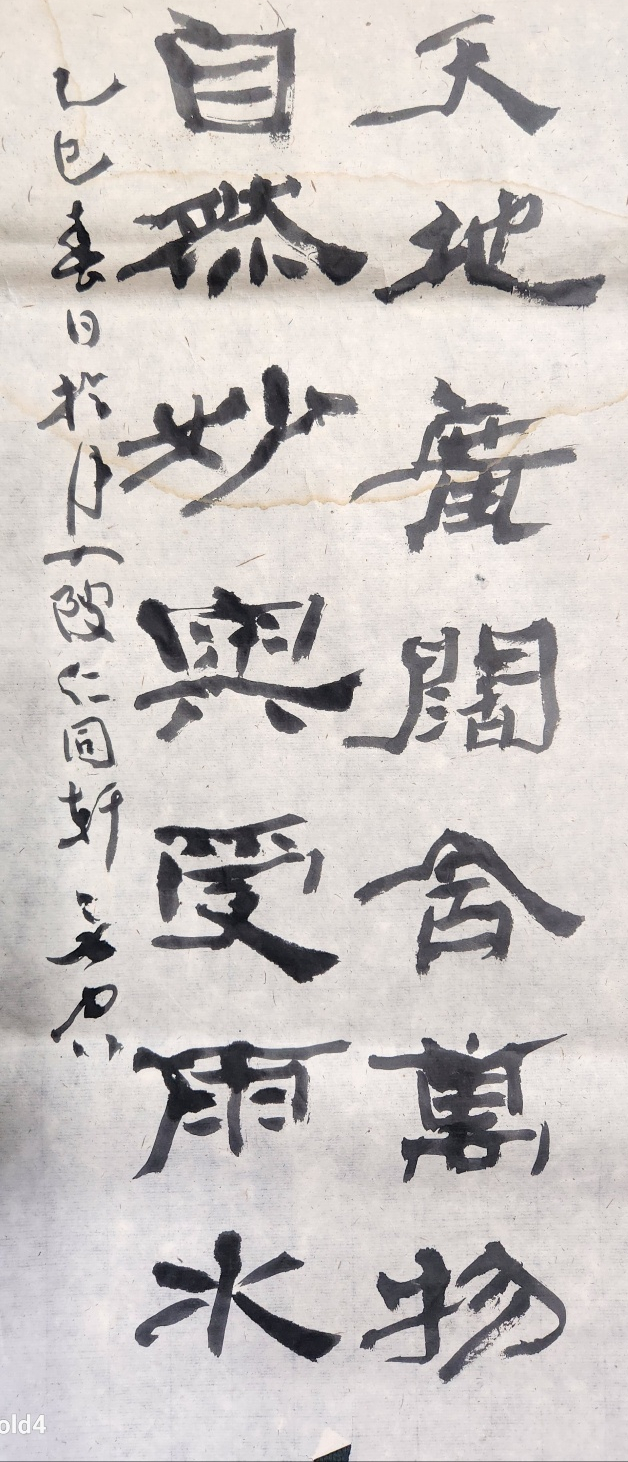 天地廣闊含萬物
自然妙興受雨水
乙巳春日於月 陂仁同軒
old4